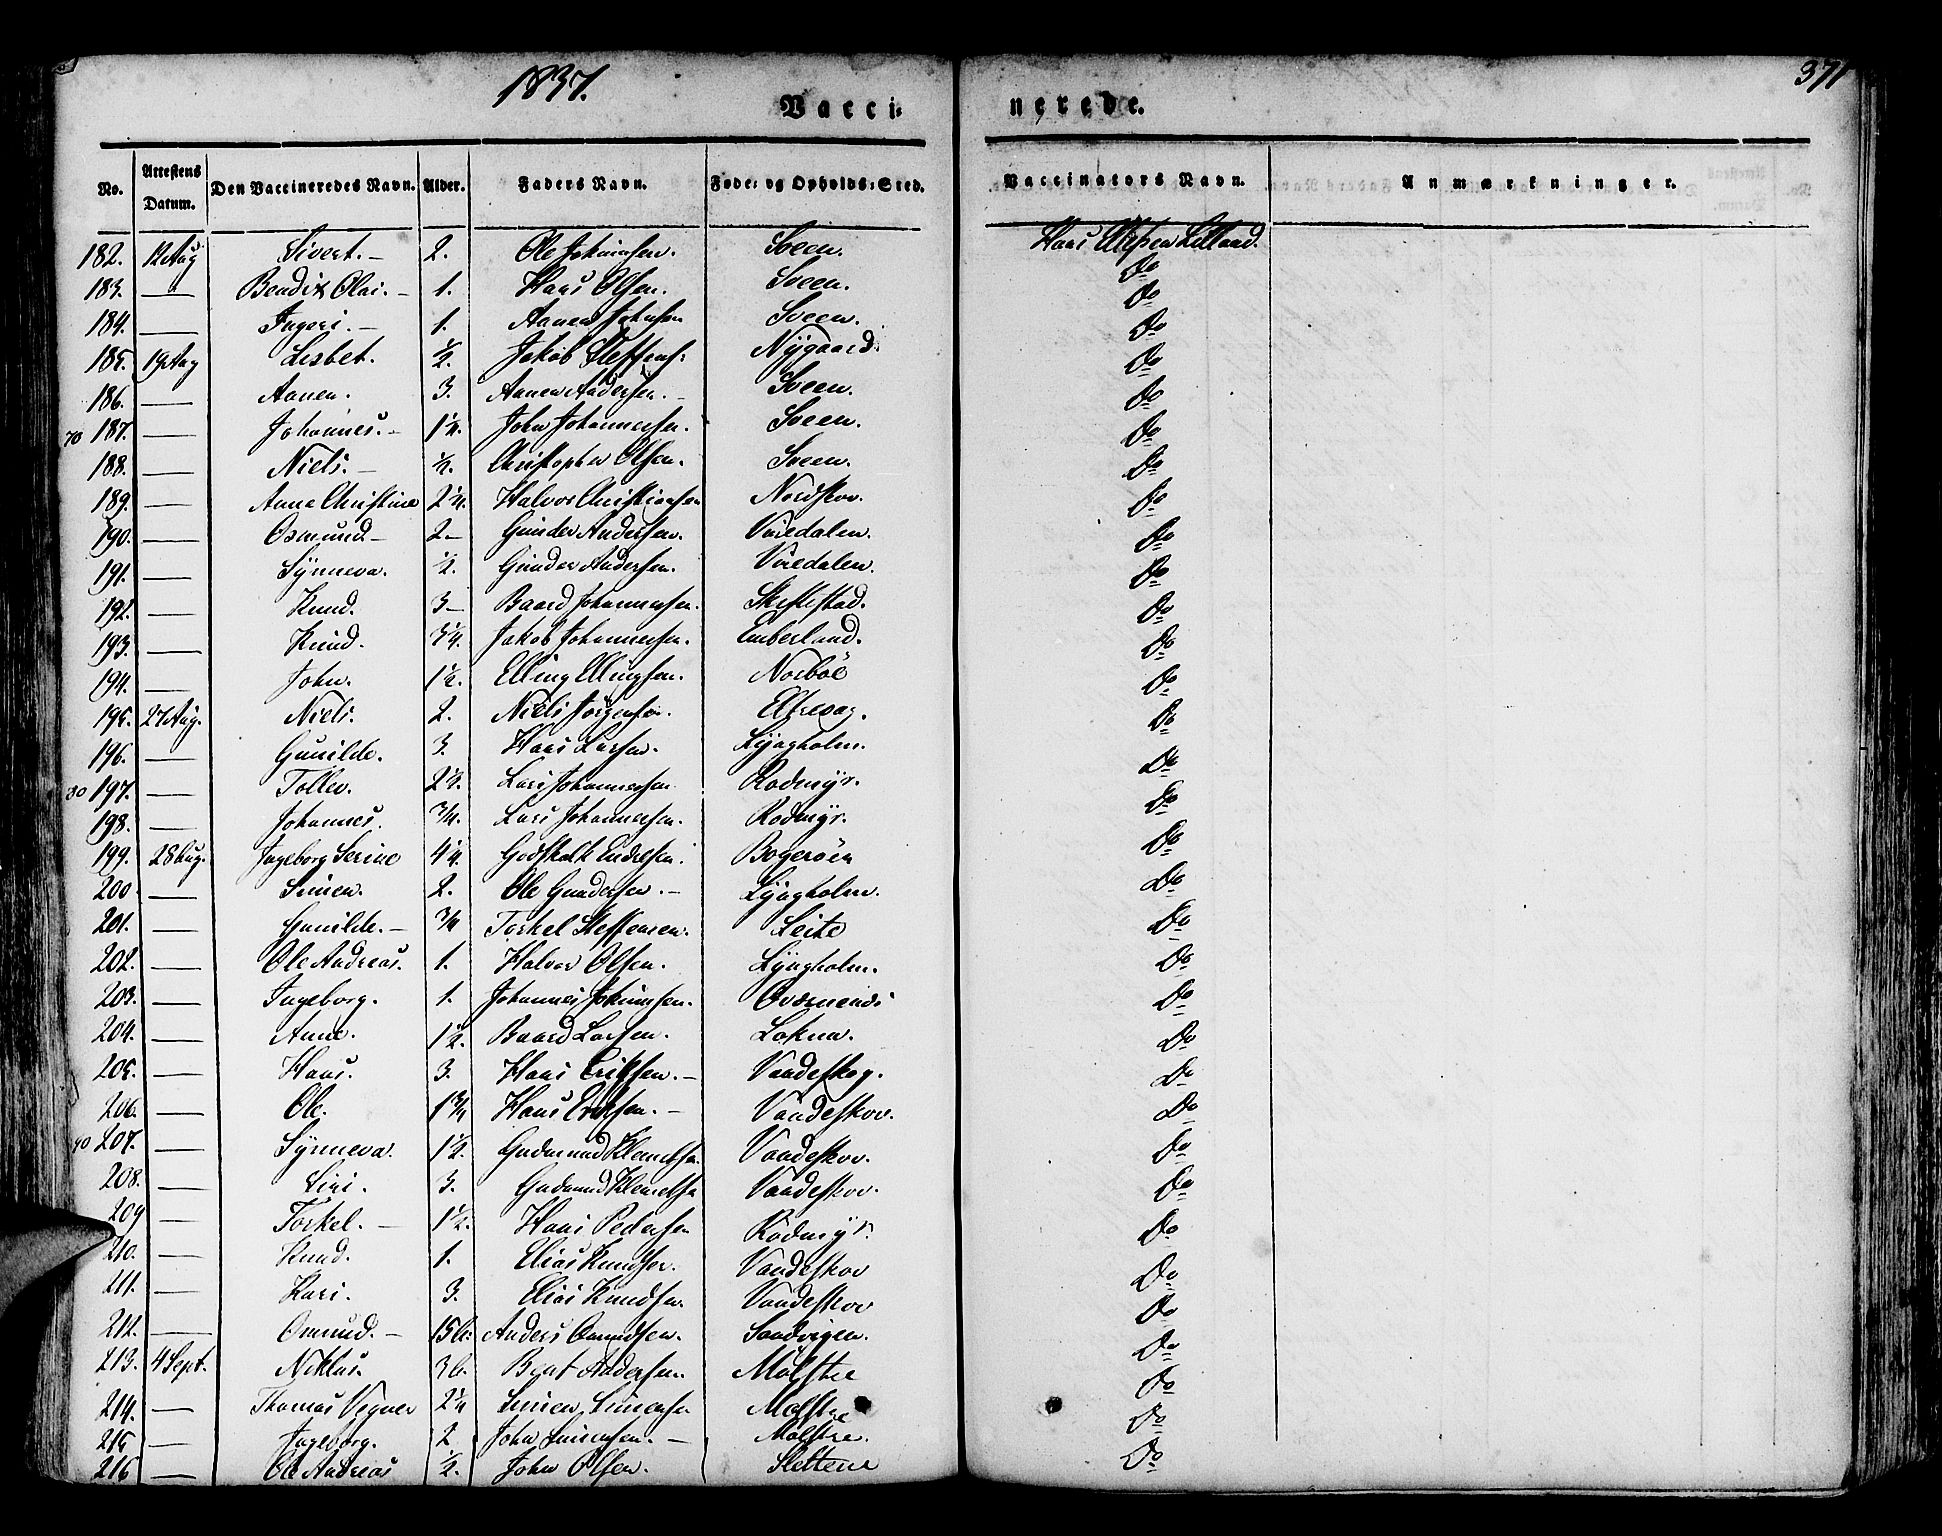 1837.
371
Vacci- nerede.
No. Attestens Datum. Den Vaccineredes Navn. Alder. Faders Navn. Føde- og Opholds-Sted. Vaccinators Navn. Anmærkninger.
182. 12 Aug Sivert. - 2. Ole Johannsen. Sveen. Hans
183. — Bendix Olai. - 1. Hans Olsen. Sveen. Do
184. — Ingeri. - 1. Aanen Johnsen Sveen. Do
185. 19 Aug Lisbet. ½. Jakob Steffens: Nygaard. Do
186. — Aanen. 3. Aanen Andersen. - Sveen. Do
70 187. — Johannes. - 1½. John Johannessen. Sveen. Do
188. — Niels. - ½. Christopher Olsen. Sveen. Do
189. — Anne Christine 2¼. Halvor Christiansen Nordskov. Do
190. — Osmund - 2 - Gunder Andersen. Viredalen. Do
191. — Synneva. ½. Gunder Andersen. Viredalen. Do
192. — Knud. 3 - Baard Johannessen. Do
193. — Knud. 3¼. Jakob Johannessen. Emberland. Do
194. — John. 1½. Elling Ellingsen. Norboe Do
195. 27 Aug. Niels. 2. Niels Jørgensen. Do
196. — Gunilde. 3. Hans Larsen. Lyngholm. Do
80 197. — Tollev. 2½. Lars Johannessen Rødmyr. Do
198. — Johannes. ¾. Lars Johannessen. Rødmyr. Do
199. 28 Aug. Ingeborg Serine 4¼. Godskalk Endresen. Bogerøen Do
200 — Simen. 2. Ole Gundersen. - Lyngholm. Do
201. — Gunilde. - ¾ Torkel Steffensen. Leite Do
202. — Ole Andreas. 1. Halvor Olsen. Lyngholm. Do
203. — Ingeborg. 1. Johannes Johannsen. Do
204. — Anne. 1½. Baard Larsen. Lokna. Do
205. — Hans. 3. Hans Eriksen. - Vandeskog. Do
206. — Ole. 1¾ Hans Eriksen. - Vandeskov. Do
90 207. — Synneva. 1½. Gudmund Klemetsen. Vandeskov. Do
208. — Siri. 3. Gudmund Klemetsen Vandeskov. Do
209 — Torkel. - 1½. Hans Pedersen Rødmyr. Do
210. — Knud. 1. Elias Knudsen. Vandeskov Do
211. — Kari. 3. Elias Knudsen. Vandeskov Do
212. — Omund. - 15 Anders Omundsen. Sandvigen. Do
213. 4 Sept. Niklas. 3 Bent Andersen. Mølstre Do
214. — Thomas Vegner 2¼ Simen Simensen Mølstre Do
215 — Ingeborg. 2 John Simensen. - Mølstre. Do
216 — Ole Andreas ½. John Olsen. Slettene Do